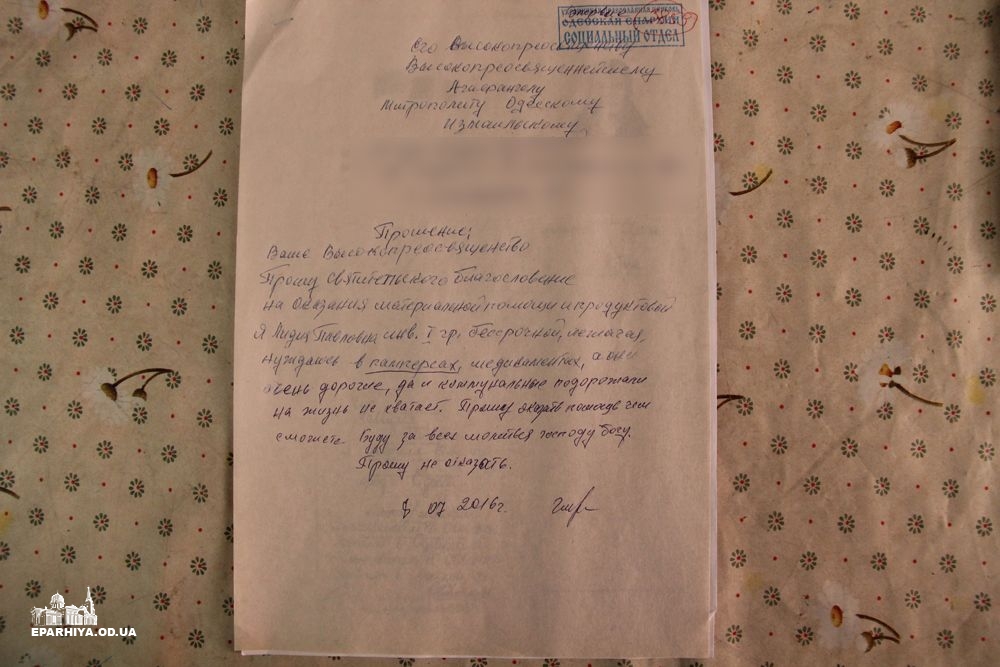 УКРАИНСКАЯ ПРАВОСЛАВНАЯ ЦЕРКОВЬ
ОДЕССКАЯ ЕПАРХИЯ
СОЦИАЛЬНЫЙ ОТДЕЛ
Его Высокопреосвященству
Высокопреосвященнейшему
Агафангелу
Митрополиту Одесскому
Измаильскому
Прошение,
Ваше Высокопреосвященство
Прошу Святительского благословение
на Оказания материальной помощи и продуктовой
Я Лидия Павловна инв. I гр. бессрочной, лежачая,
нуждаюсь в памперсах, медикаментах, а они
очень дорогие, да и коммунальные подорожали
на жизнь не хватает. Прошу оказать помощь чем
сможете. Буду за всех молиться господу богу.
Прошу не отказать.
8 07 2016г.
EPARHIYA.OD.UA